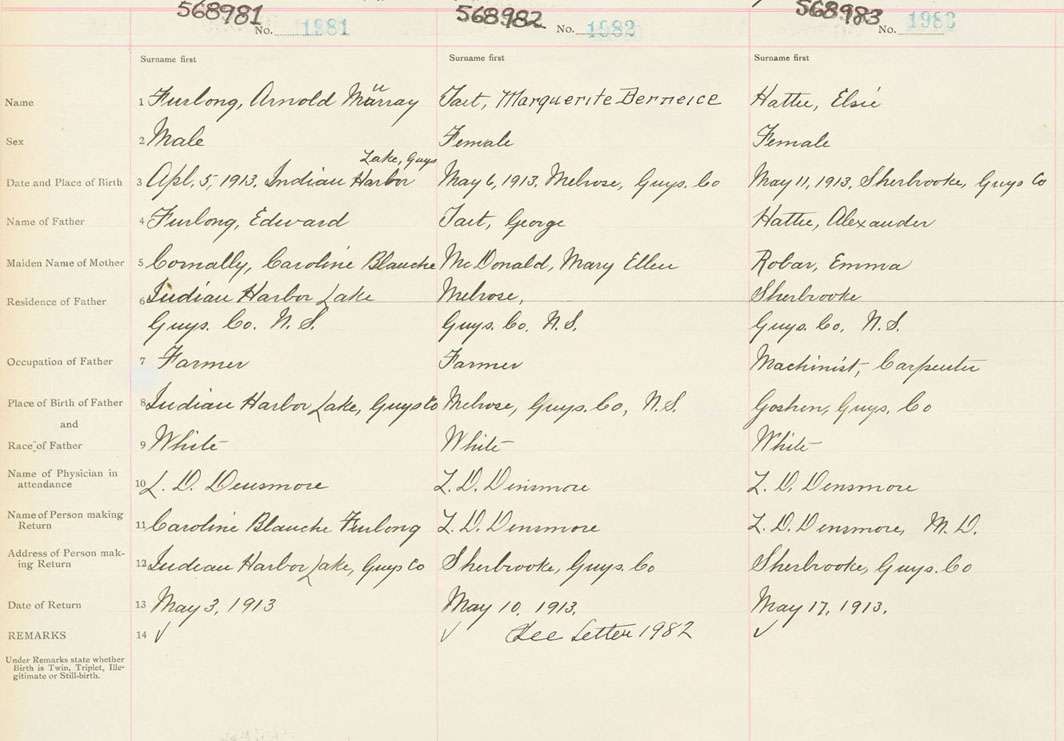 568981 568982 568983
No. 1981 No. 1982 No. 1983
Surname first Surname first Surname first
Name 1 Furlong, Arnold Murray Tart, Marguerite Berneice Hattie, Elsie
Sex 2 Male Female Female
Lake, Guys
Date and Place of Birth 3 Apl. 5, 1913, Indian Harbor May 6, 1913, Melrose, Guys. Co May 11, 1913, Sherbrooke, Guys Co
Name of Father 4 Furlong, Edward Tart, George Hattie, Alexander
Maiden Name of Mother 5 Connally, Caroline Blanche McDonald, Mary Ellen Robar, Emma
Residence of Father 6 Indian Harbor Lake Melrose, Sherbrooke
Guys. Co. N.S. Guys. Co, N.S. Guys. Co, N.S.
Occupation of Father 7 Farmer Farmer Machinist, Carpenter
Place of Birth of Father 8 Indian Harbor Lake, Guys Co Melrose, Guys. Co, N.S. Goshen, Guys. Co
and
Race of Father 9 White White White
Name of Physician in
attendance 10 L. D. Densmore L. D. Densmore L. D. Densmore
Name of Person making
Return 11 Caroline Blanche Furlong L. D. Densmore L. D. Densmore, M.D.
Address of Person mak-
ing Return 12 Indian Harbor Lake, Guys Co Sherbrooke, Guys. Co Sherbrooke, Guys. Co
Date of Return 13 May 3, 1913 May 10, 1913, May 17, 1913.
REMARKS 14 ✓ ✓ See Letter 1982 ✓
Under Remarks state whether
Birth is Twin, Triplet, Ille-
gitimate or Still-birth.